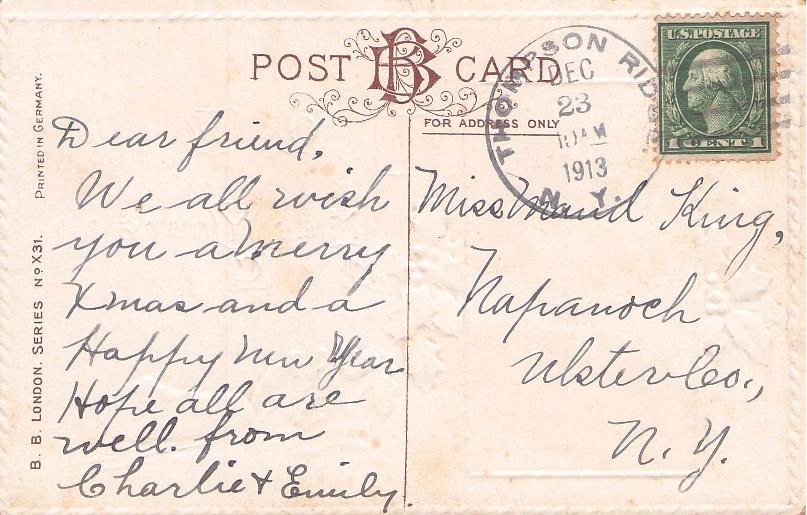 POST BB CARD
FOR ADDRESS ONLY
THOMPSON RIDGE
DEC
23
10 AM
1913
N. Y.
U.S. POSTAGE
1 CENT 1
PRINTED IN GERMANY.
B. B. LONDON. SERIES No X31.
Dear friend,
We all wish
you a Merry
Xmas and a
Happy New Year
Hope all are
well. from
Charlie & Emily.
Miss Maud King,
Napanoch
Ulster Co.,
N. Y.